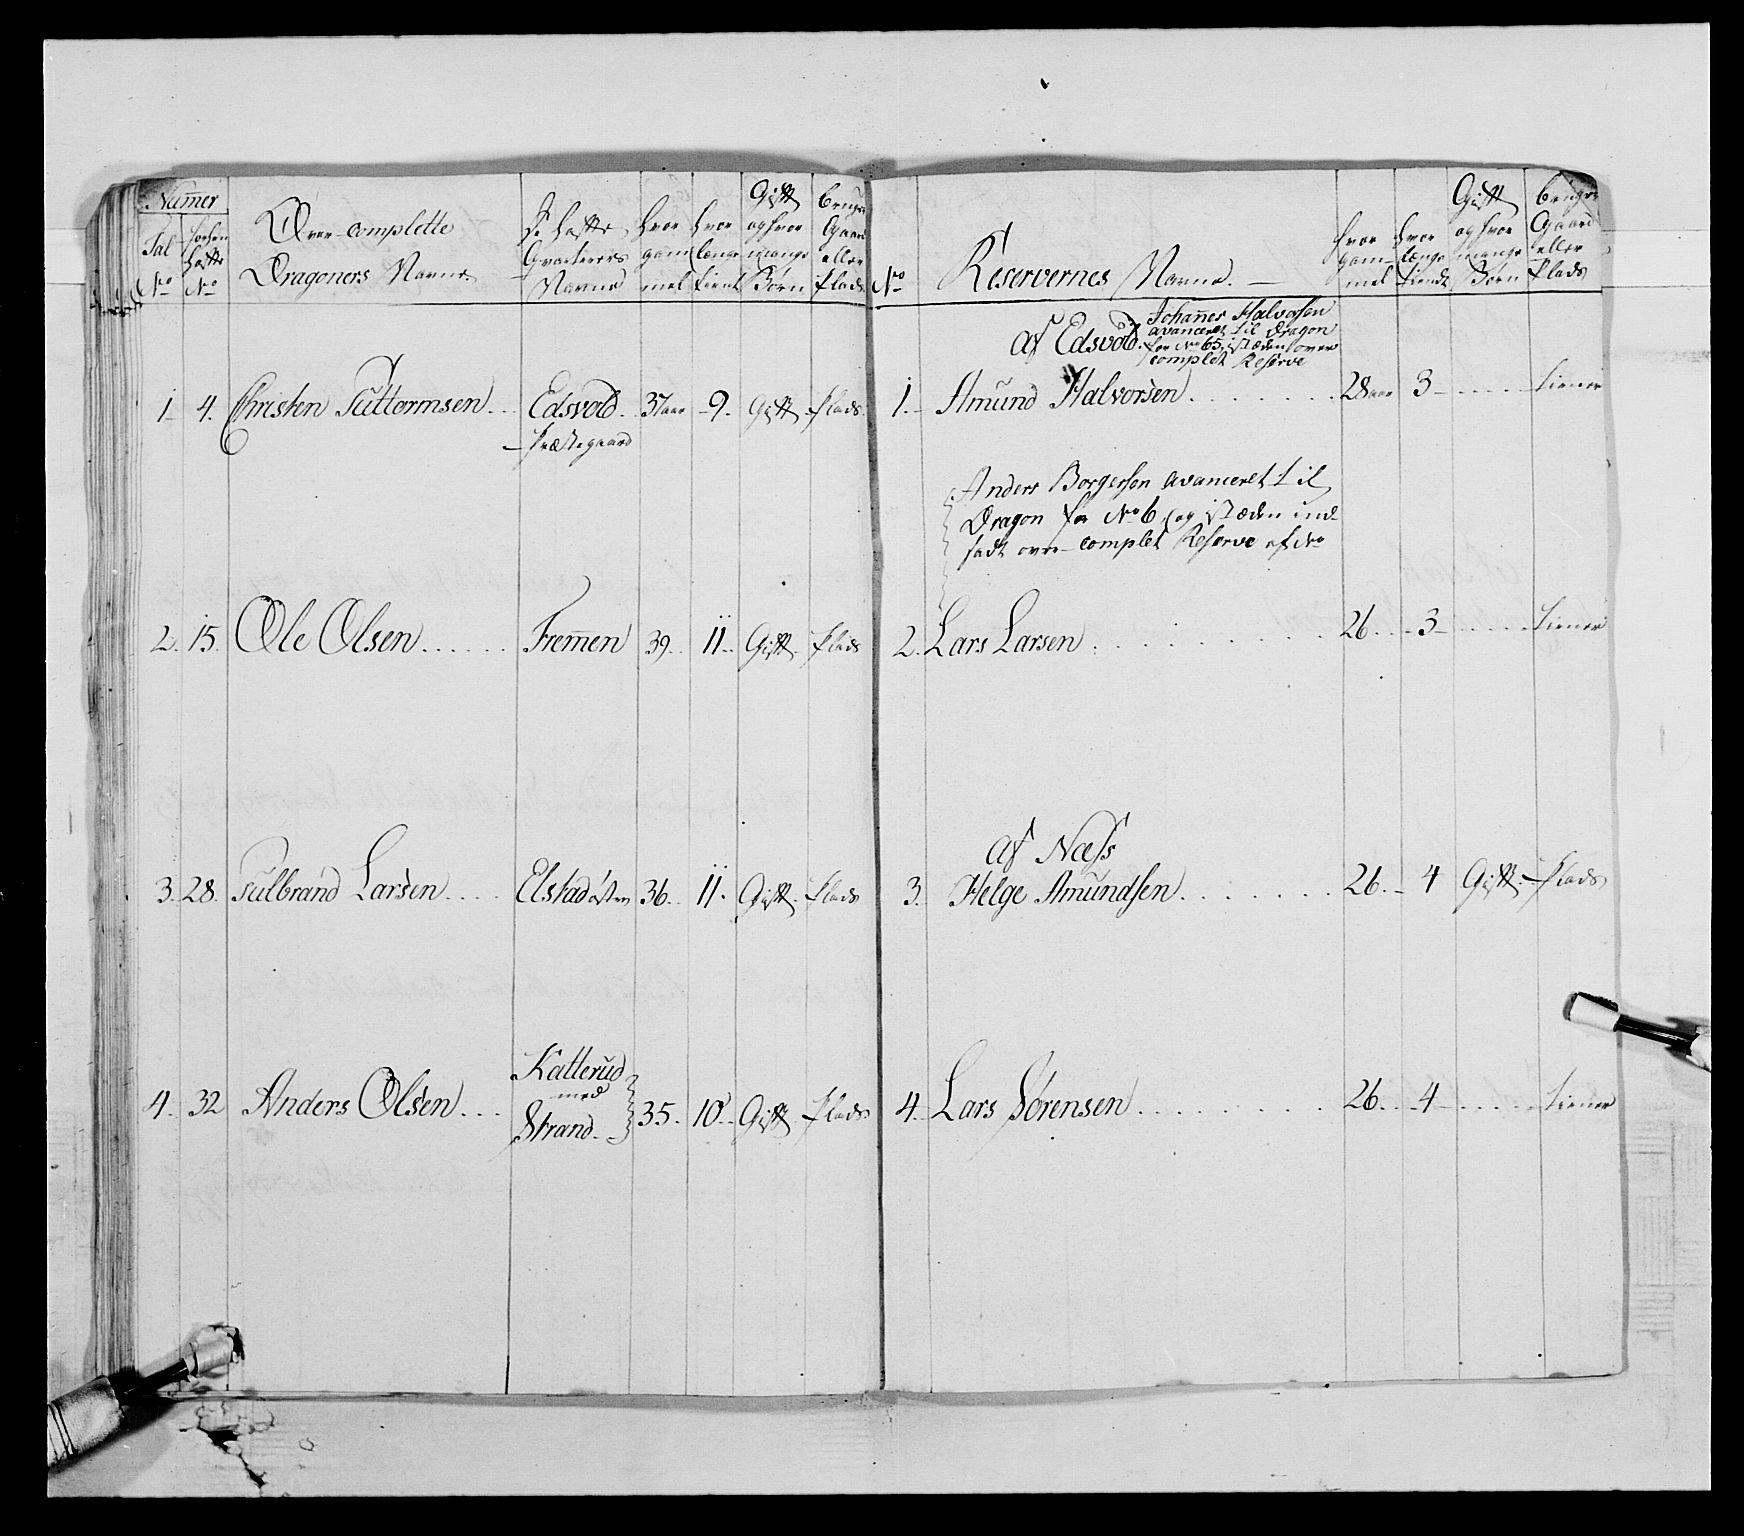 Numer
Tal No
forhen hafte No
Over-complette
Dragoners Navne
De hafte
Qvarterers
Navne
hvor gam mel
hvor længe tient
Gift og hvor mange Börn
bruger Gaard eller Plads
No
Reservernes Navne.
hvor gam- mel
hvor længe tiendt
Gift og hvor mange Börn
bruger Gaard eller Plads
Af Edsvold.
Johannes Halvorsen
avanceret til Dragon
for No 65, istæden over
complet Reserve
1 4. Christen Guttormsen Edsvold 37 aar 9. Gift. Plads.
Præstegaard
1. Amund Halvorsen 28 aar 3 tiener
Anders Borgersen avanceret til
Dragon for No 6, og istæden ind
sadt over-complet Reserve af No
2. 15. Ole Olsen Fremen 39. 11 Gift. Plads
2. Lars Larsen 26 3 tiener
Af Næss
3. 28. Gulbrand Larsen Elstad østen 36. 11. Gift. Plads
3. Helge Amundsen 26. 4 Gift. Plads
4. 32 Anders Olsen Katterud
med
Strand. 35. 10 Gift. Plads
4. Lars Sörensen 26. 4 tiener